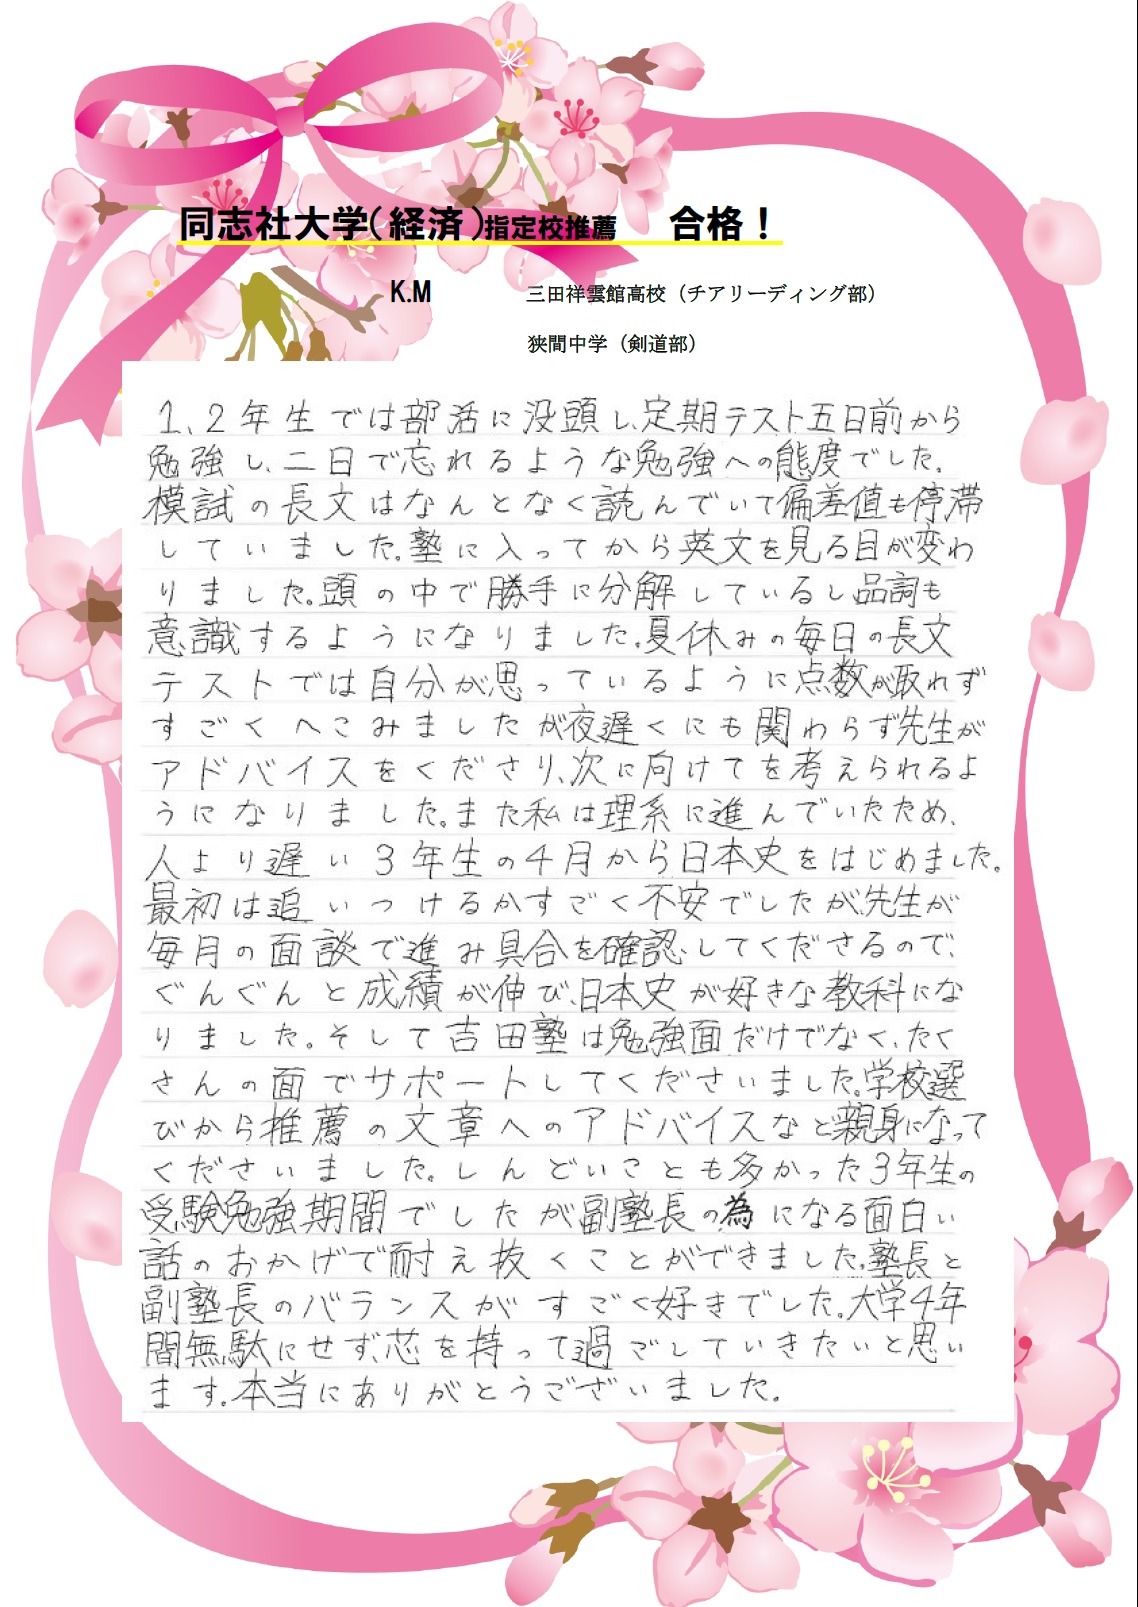 同志社大学(経済)指定校推薦 合格！
K.M 三田祥雲館高校（チアリーディング部）
狭間中学（剣道部）
1、2年生では部活に没頭し、定期テスト五日前から
勉強し、二日で忘れるような勉強への態度でした。
模試の長文はなんとなく読んでいて偏差値も停滞
していました。塾に入ってから英文を見る目が変わ
りました。頭の中で勝手に分解しているし品詞も
意識するようになりました。夏休みの毎日の長文
テストでは自分が思っているように点数が取れず
すごくへこみましたが夜遅くにも関わらず先生が
アドバイスをくださり、次に向けてを考えられるよ
うになりました。また私は理系に進んでいたため、
人より遅い3年生の4月から日本史をはじめました。
最初は追いつけるかすごく不安でしたが、先生が
毎月の面談で進み具合を確認してくださるので、
ぐんぐんと成績が伸び、日本史が好きな教科にな
りました。そして吉田塾は勉強面だけでなく、たく
さんの面でサポートしてくださいました。学校選
びから推薦の文章へのアドバイスなど親身になって
くださいました。しんどいことも多かった3年生の
受験勉強期間でしたが副塾長の為になる面白い
話のおかげで耐え抜くことができました。塾長と
副塾長のバランスがすごく好きでした。大学4年
間無駄にせず、芯を持って過ごしていきたいと思い
ます。本当にありがとうございました。